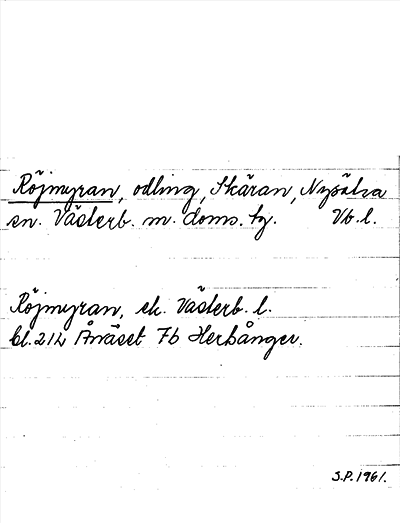 Röjmyran, odling, Skäran, Nysätra
sn. Västerb. m. doms. tg. Vb. l.
Röjmyran, ek. Västerb. l.
bl. 214 Ånäset 7b Herbånger.
S.P. 1961.